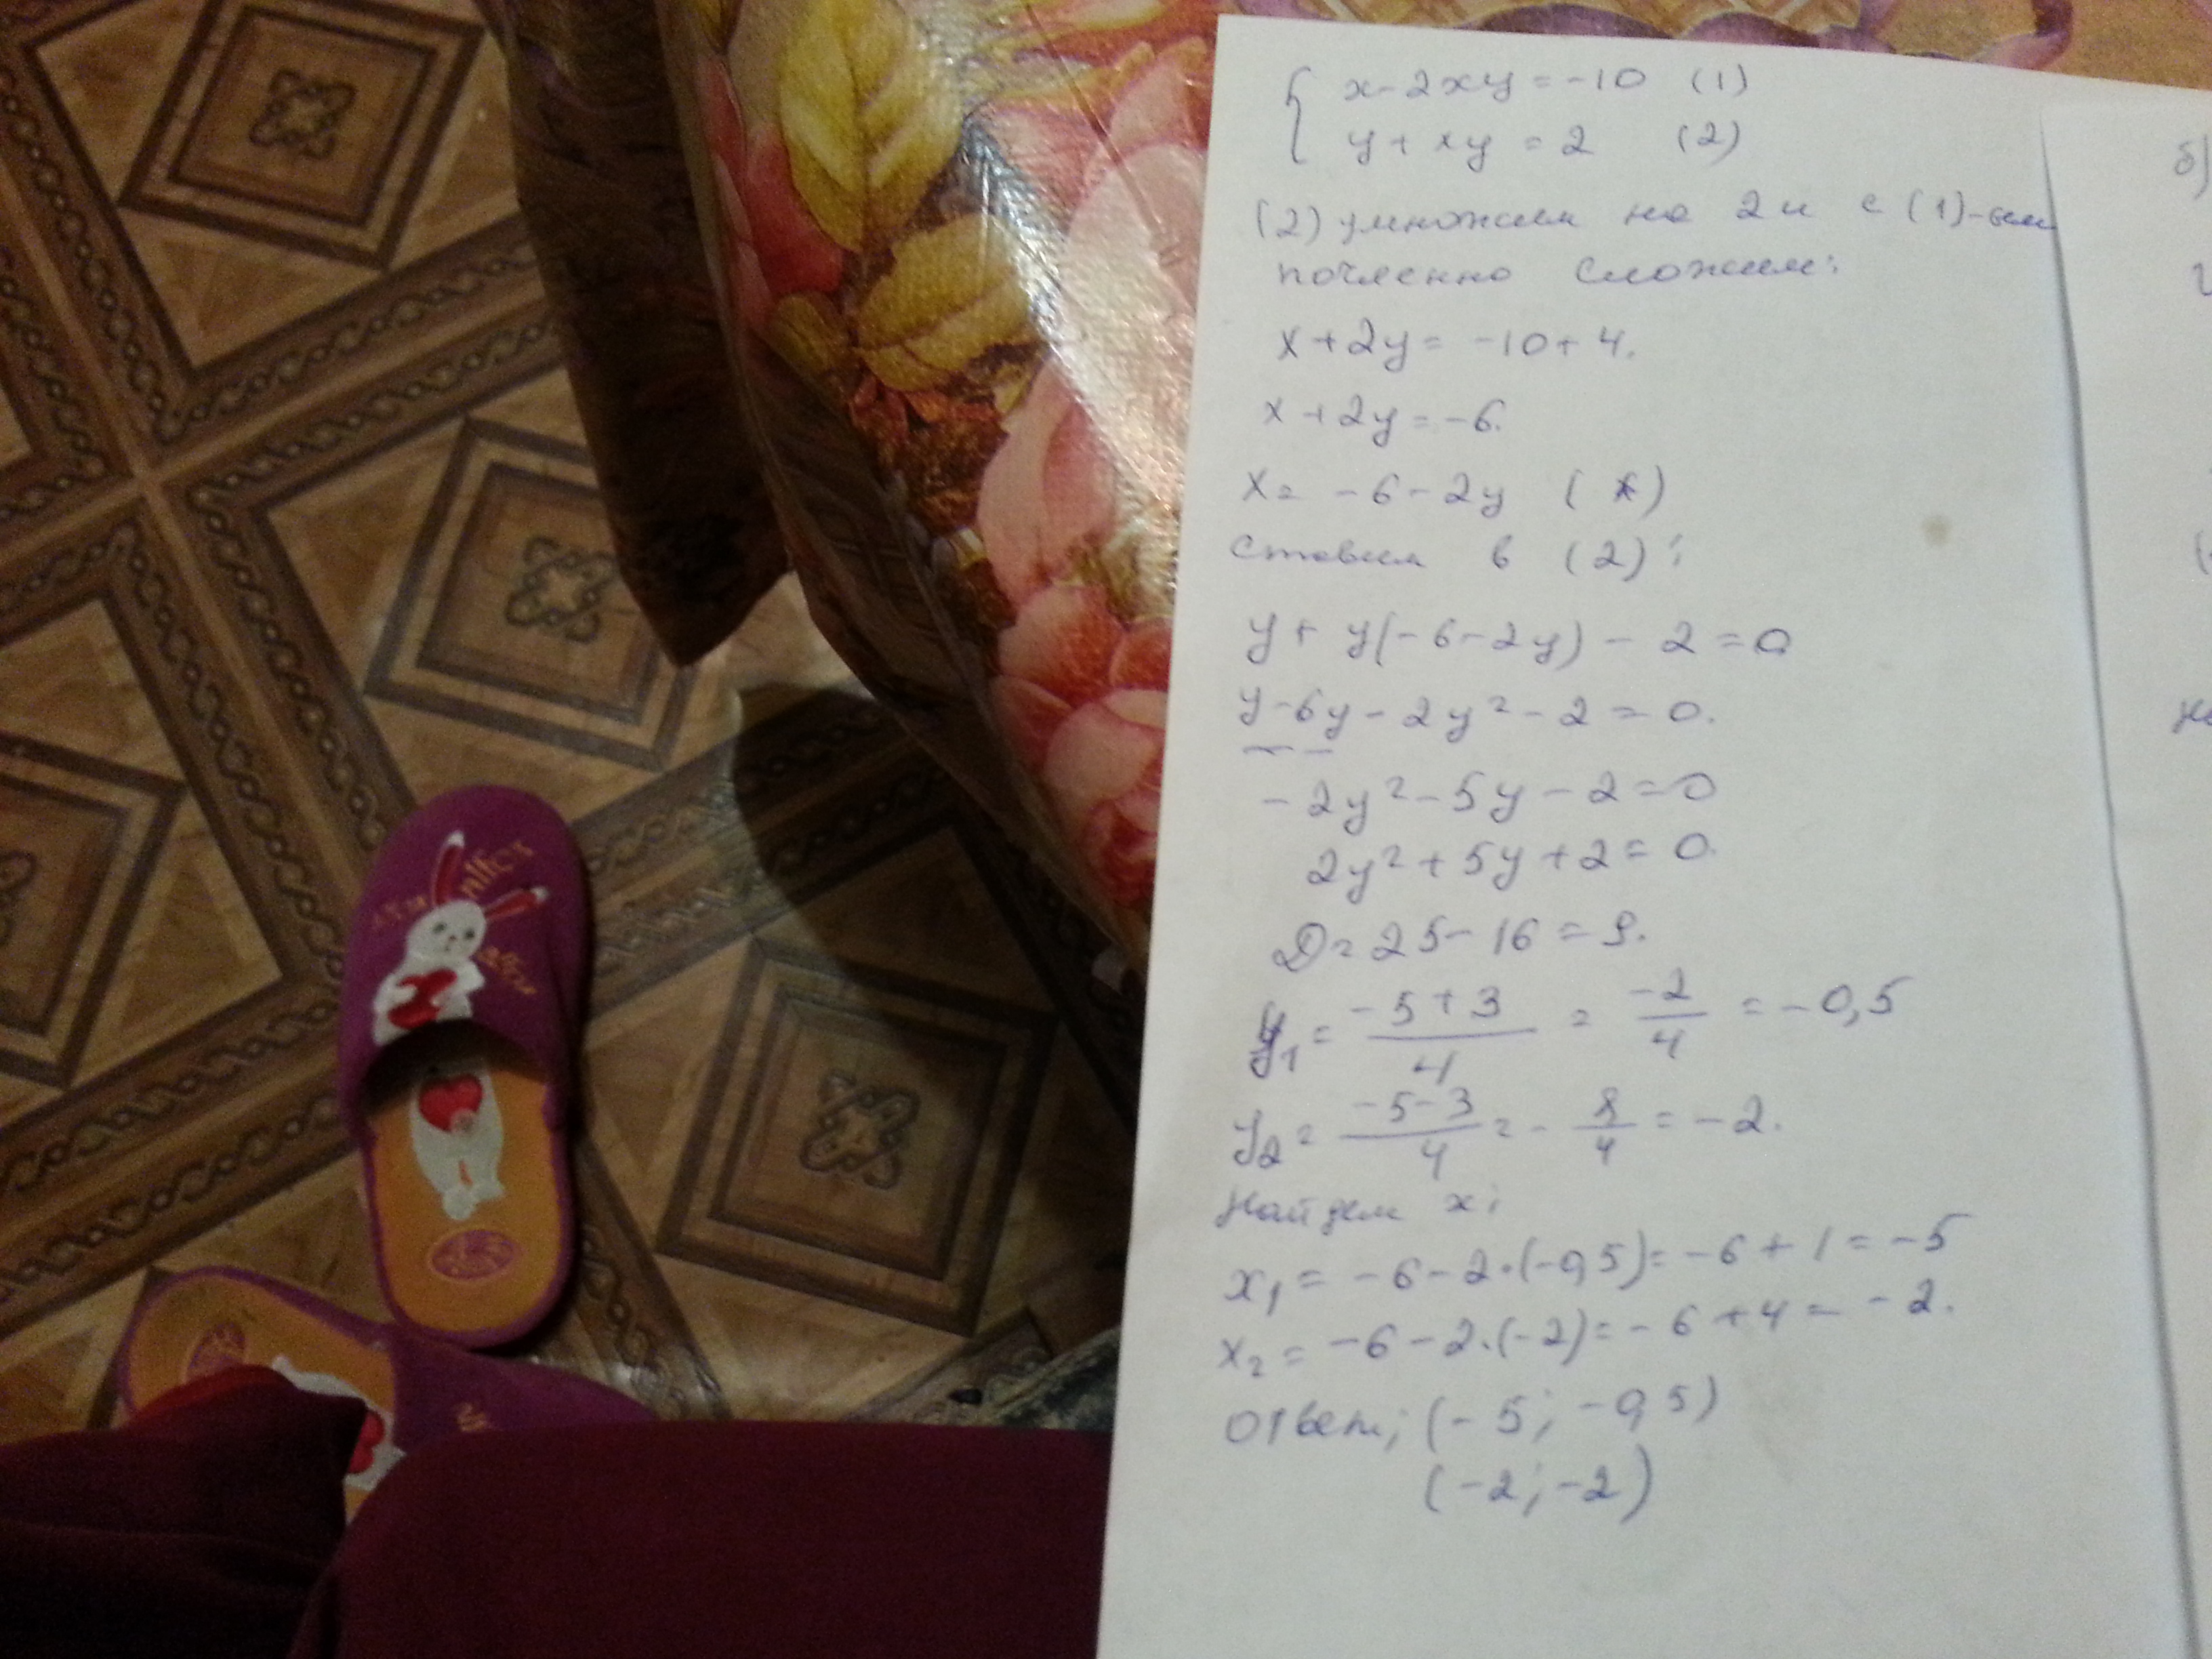 x-2xy=-10 (1)
y+xy=2 (2)
(2) умножим на 2 и с (1)-ым
почленно сложим:
x+2y=-10+4.
x+2y=-6.
x=-6-2y (*)
ставим в (2):
y+y(-6-2y)-2=0
y-6y-2y²-2=0.
-2y²-5y-2=0
2y²+5y+2=0.
D=25-16=9.
y₁=(-5+3)/4=-2/4=-0,5
y₂=(-5-3)/4=-8/4=-2.
Найдем x:
x₁=-6-2·(-0,5)=-6+1=-5
x₂=-6-2·(-2)=-6+4=-2.
Ответ: (-5; -0,5)
(-2; -2)
б)